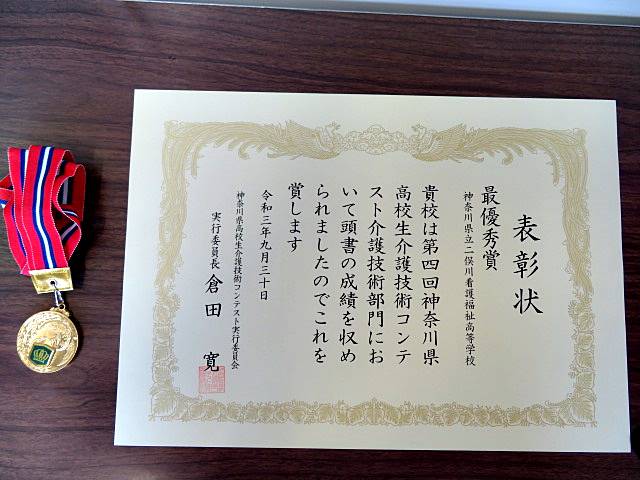 表彰状
最優秀賞
神奈川県立二俣川看護福祉高等学校
貴校は第四回神奈川県
高校生介護技術コンテ
スト介護技術部門にお
いて頭書の成績を収め
られましたのでこれを
賞します
令和三年九月三十日
神奈川県高校生介護技術コンテスト実行委員会
実行委員長 倉田 寛